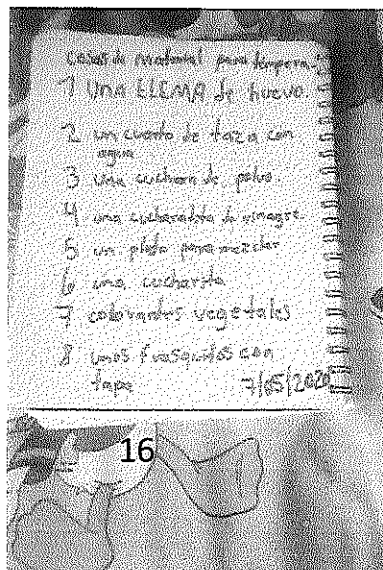 cosas de material para tempera.
1 Una LLEMA de huevo.
2 un cuarto de taza con
agua
3 una cuchara de polvo.
4 una cucharadita de vinagre
5 un plato para mezclar
6 una cucharita
7 colorantes vegetales
8 unos frasquitos con
tapa 7/05/2020
16